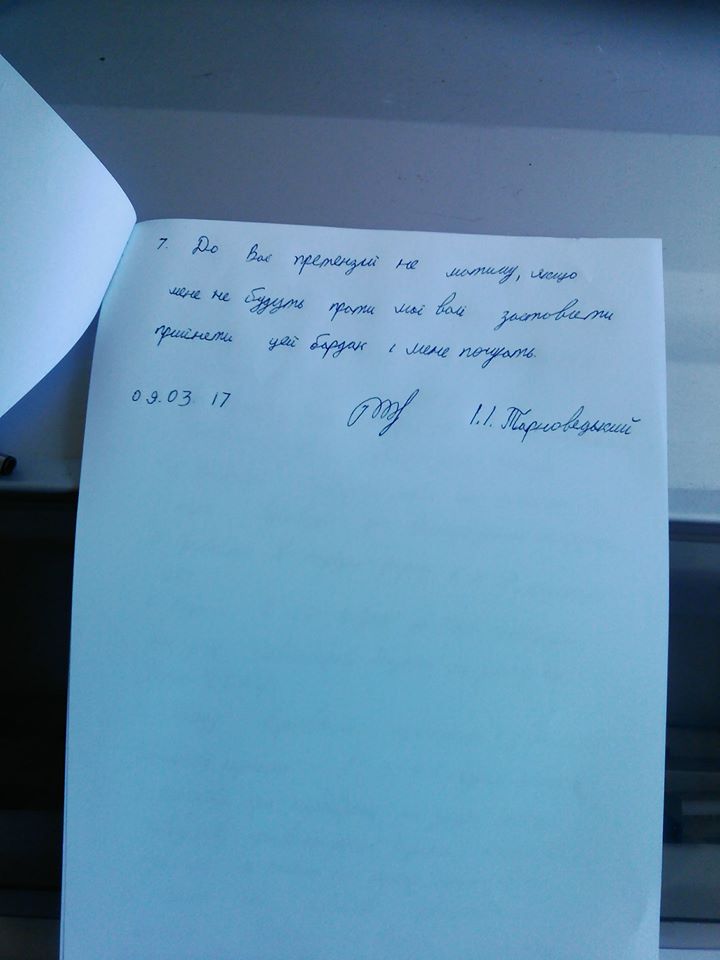 7. До Вас претензій не матиму, якщо
мене не будуть проти моєї волі заставляти
прийняти цей бардак і мене почують.
09.03.17 І.І. Тарновецький